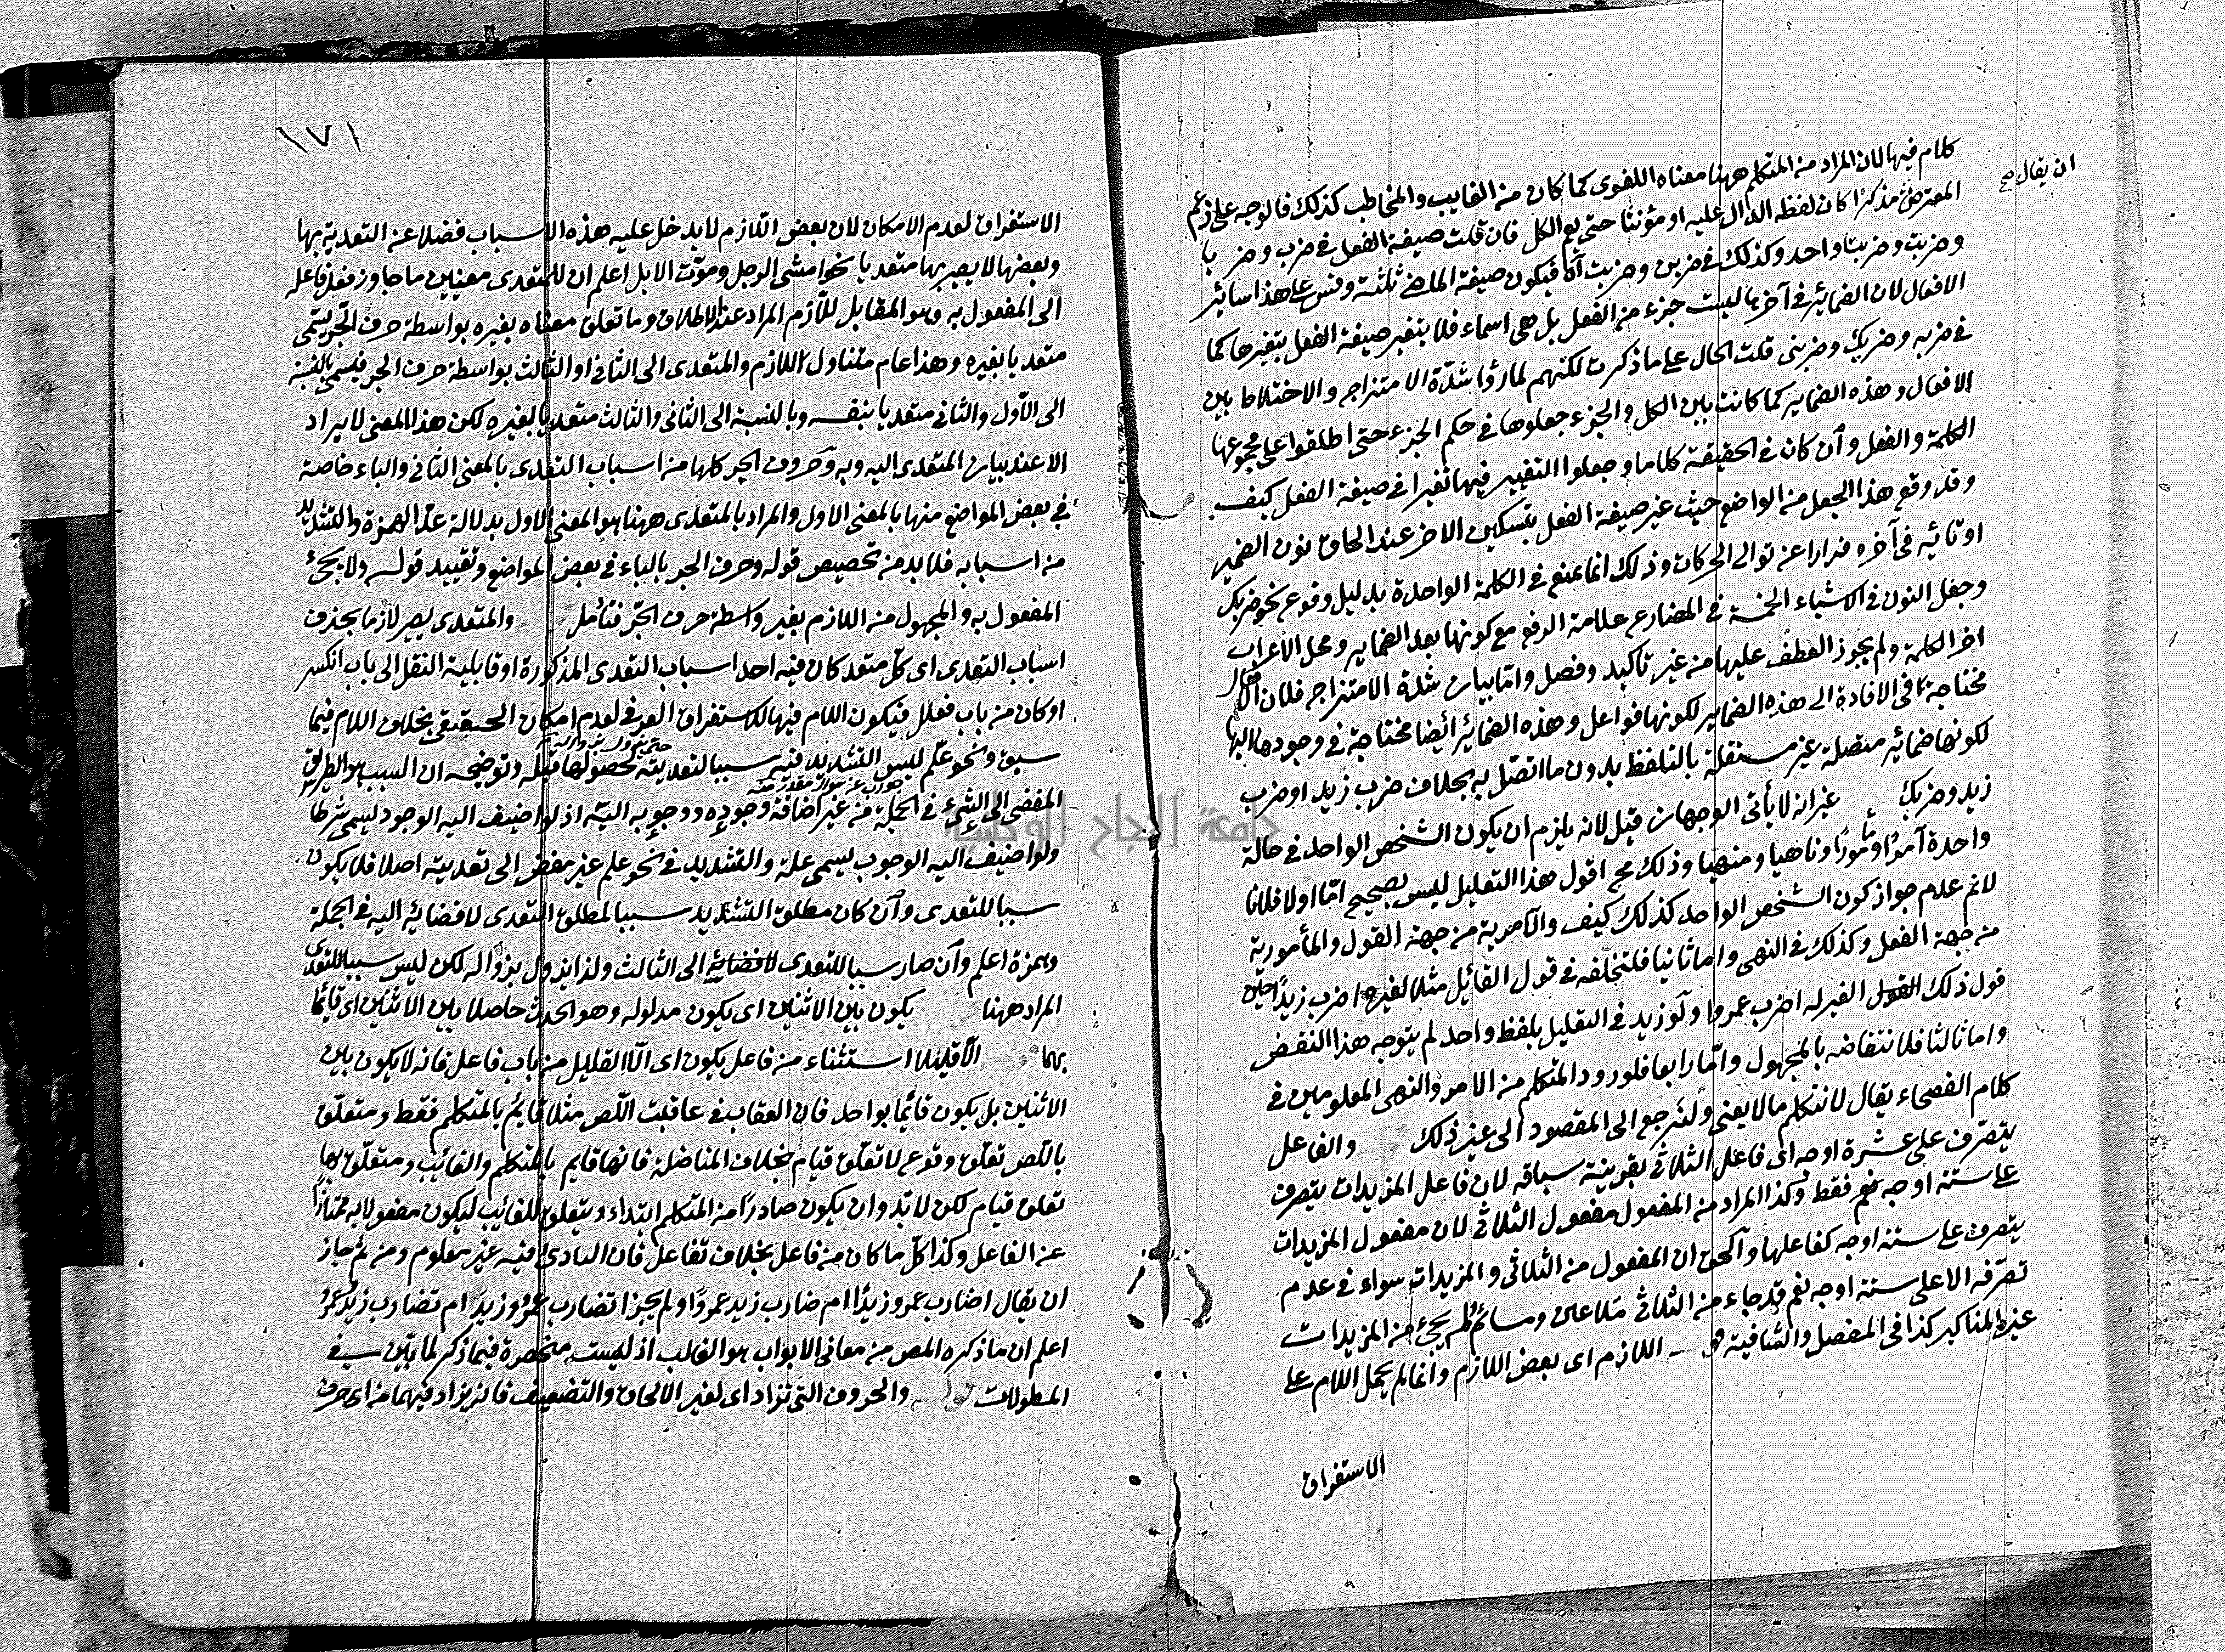 كلام فيها لان المراد من المتكلم ههنا معناه اللغوى كما كان من الغايب والمخاطب كذلك فالوجه على زعم
ان يقال صح
المعترض مذكرا كان لفظه الدال عليه او مؤنثا حتى يعم الكل فان قلت صيغة الفعل فى ضرب وضربا
وضربت وضربتا واحد وكذلك فى ضربن وضربت آه فيكون صيغة الماضى ثلثة وقس على هذا سائر
الافعال لان الضمائر فى آخرها ليست جزء من الفعل بل هى اسماء فلا يتغير صيغة الفعل بتغيرها كما
فى ضربه وضربك وضربنى قلت الحال على ما ذكرت لكنهم لما رؤا شدة الامتزاج والاختلاط بين
الافعال وهذه الضماير كما كانت بين الكل والجزء جعلوها فى حكم الجزء حتى اطلقوا على مجموعها
الكلمة والفعل وان كان فى الحقيقة كلاما وجعلوا التغيير فيها تغيرا فى صيغة الفعل كيف
وقد وقع هذا الجعل من الواضع حيث غير صيغة الفعل بتسكين الاخر عند الحاق نون الضمير
او تائيه فى آخره فرارا عن توالى الحركات وذلك انما يمنع فى الكلمة الواحدة بدليل وقوع نحو ضربك
وجعل النون فى الاشياء الخمسة فى المضارع علامة الرفع مع كونها بعد الضماير ومحل الاعراب
اخر الكلمة ولم يجوز العطف عليها من غير تأكيد وفصل واما بيان شدة الامتزاج فلان الافعال
محتاجة فى الافادة الى هذه الضماير لكونها فواعل وهذه الضمائر أيضا محتاجة فى وجودها اليها
لكونها ضمائر متصلة غير مستقلة بالتلفظ بدون ما اتصل به بخلاف ضرب زيد او ضرب
زيد وضربك غير انه لا يأتى الوجهان قيل لانه يلزم ان يكون الشخص الواحد فى حالة
واحدة آمرا ومأمورا وناهيا ومنهيا وذلك مح اقول هذا التعليل ليس بصحيح اما اولا فلانا
لانم عدم جواز كون الشخص الواحد كذلك كيف والآمرية من جهة القول والمأمورية
من جهة الفعل وكذلك فى النهى واما ثانيا فلتخلفه فى قول القائل مثلا لغيره اضرب زيدا حين
قول ذلك الغير له اضرب عمروا ولو زيد فى التعليل بلفظ واحد لم يتوجه هذا النقض
واما ثالثا فلانتقاضه بالمجهول واما رابعا فلورود المتكلم من الامر والنهى المعلومين فى
كلام الفصحاء يقال لا نتكلم ما لا يعنى ولنرجع الى المقصود الى غير ذلك والفاعل
يتصرف على عشرة اوجه اى فاعل الثلاثى بقرينة سباقه لان فاعل المزيدات يتصرف
على ستة اوجه نعم فقط وكذا المراد من المفعول مفعول الثلاثى لان مفعول المزيدات
يتصرف على ستة اوجه كفاعلها والحق ان المفعول من الثلاثى والمزيدات سواء فى عدم
تصرفه الا على ستة اوجه نعم قد جاء من الثلاثى ملاعين ومسائم ولم يجئ من المزيدات
غير المناكير كذا فى المفصل والشافية اللازم اى بعض اللازم وانما لم يحمل اللام على
الاستغراق
١٧١
الاستغراق لعدم الامكان لان بعض اللازم لا يدخل عليه هذه الاسباب فضلا عن التعدية بها
وبعضها لا يصير بها متعديا نحو امشى الرجل وموت الابل اعلم ان للمتعدى معنيين ما جاوز فعل فاعله
الى المفعول به وهو المقابل للازم المراد عند الاطلاق وما تعلق معناه بغيره بواسطة حرف الجر يسمى
متعديا بغيره وهذا عام متناول اللازم والمتعدى الى الثانى او الثالث بواسطة حرف الجر فيسمى بالنسبة
الى الاول والثانى متعديا بنفسه وبالنسبة الى الثانى والثالث متعديا بغيره لكن هذا المعنى لا يراد
الا عند بيان المتعدى اليه وبه وحروف الجر كلها من اسباب التعدى بالمعنى الثانى والباء خاصة
فى بعض المواضع منها بالمعنى الاول والمراد بالمتعدى ههنا هو المعنى الاول بدلالة عد الهمزة والتشديد
من اسبابه فلا بد من تخصيص قوله وحرف الجر بالباء فى بعض المواضع وتقييد قوله ولا يجئ
المفعول به والمجهول من اللازم بغير واسطة حرف الجر فتأمل والمتعدى يصير لازما بحذف
اسباب التعدى اى كل متعد كان فيه احد اسباب التعدى المذكورة او قابلية النقل الى باب انكسر
او كان من باب فعلل فيكون اللام فيها للاستغراق العرفى لعدم امكان الحقيقى بخلاف اللام فيما
سبق ونحو علم ليس التشديد فيه سببا لتعديته لحصولها قبله وتوضيحه ان السبب هو الطريق
جواب عن سؤال مقدر
المفضى الى الشئ فى الجملة من غير اضافة وجوده ووجوبه اليه اذ لو اضيف اليه الوجود ليسمى شرطا
ولو اضيف اليه الوجوب ليسمى علة والتشديد فى نحو علم غير مفض الى تعديته اصلا فلا يكون
سببا للتعدى وان كان مطلق التشديد سببا لمطلق التعدى لافضائه اليه فى الجملة
وهمزة اعلم وان صار سببا للتعدى لافضائه الى الثالث ولذا يزول بزواله لكن ليس سببا للتعدى
المراد ههنا يكون بين الاثنين اى يكون مدلوله وهو الحدث حاصلا بين الاثنين اى قائما
بهما الا قليلا استثناء من فاعل يكون اى الا القليل من باب فاعل فانه لا يكون بين
الاثنين بل يكون قائما بواحد فان العقاب فى عاقبت اللص مثلا قائم بالمتكلم فقط ومتعلق
باللص تعلق وقوع لا تعلق قيام بخلاف المناضلة فانها قايم بالمتكلم والغائب ومتعلق بها
تعلق قيام لكن لا بد وان يكون صادرا من المتكلم ابتداء ويتعلق للغائب ليكون مفعولا به ممتازا
عن الفاعل وكذا كل ما كان من فاعل بخلاف تفاعل فان البادئ فيه غير معلوم ومن ثم جاز
ان يقال اضارب عمرو زيدا ام ضارب زيد عمروا ولم يجز اتضارب عمرو وزيد ام تضارب زيد عمرو
اعلم ان ما ذكره المص من معانى الابواب هو الغالب اذ ليست منحصرة فيما ذكر لما تبين فى
المطولات والحروف التى تزاد اى لغير الالحاق والتضعيف فانه يزاد فيهما من اى حرف